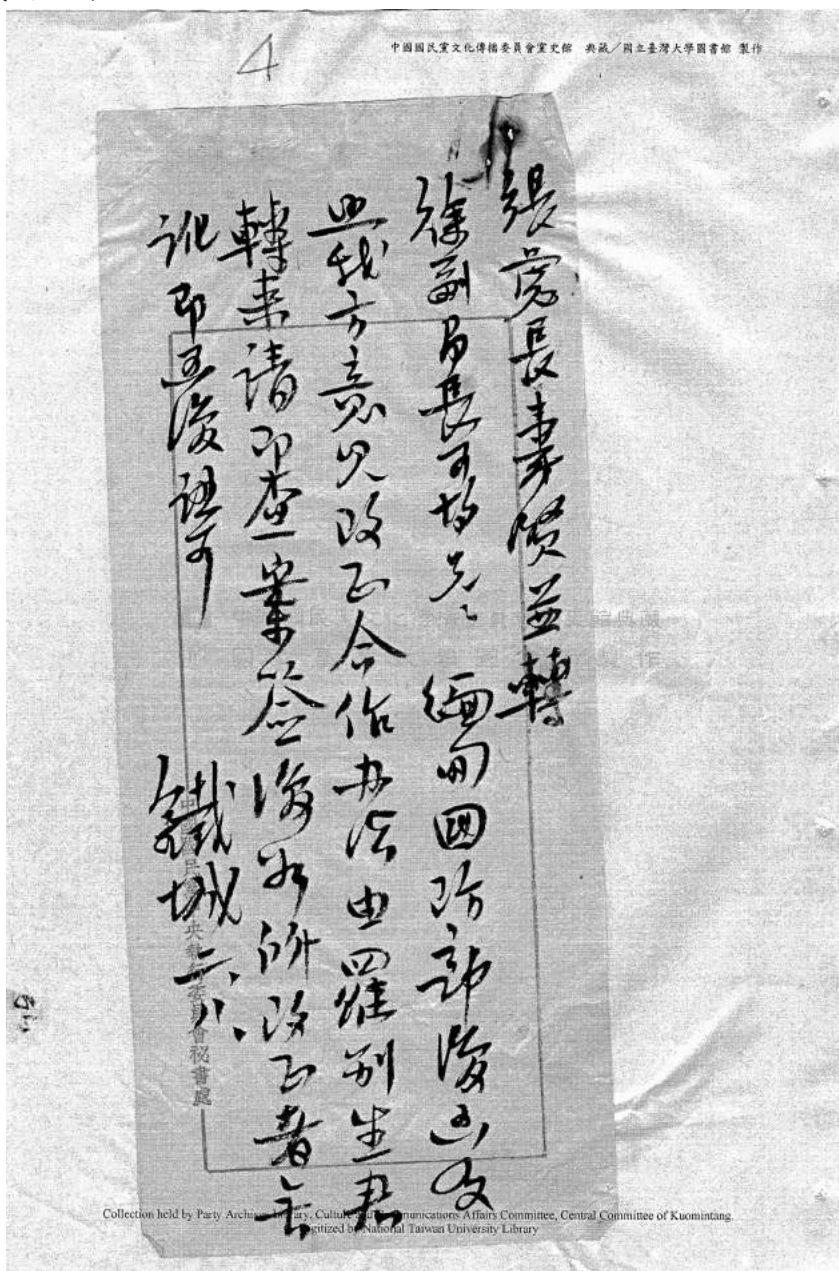 中國國民黨文化傳播委員會黨史館 典藏／國立臺灣大學圖書館 製作
4
張處長壽賢並轉
徐副局長可均兄： 緬甸國防部復函及
與我方意見改正合作办法由羅列生君
轉来請即查一案簽復如所改正者無
訛即函復諾可
鐵城 六、八、
中國國民黨中央執行委員會秘書處
Collection held by Party Archives Library, Culture and Communications Affairs Committee, Central Committee of Kuomintang.
Digitized by National Taiwan University Library